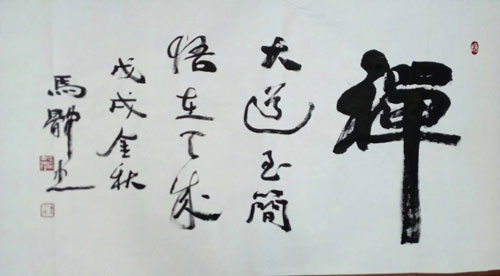 禪
大道至簡
悟在天成
戊戌金秋
馬靜